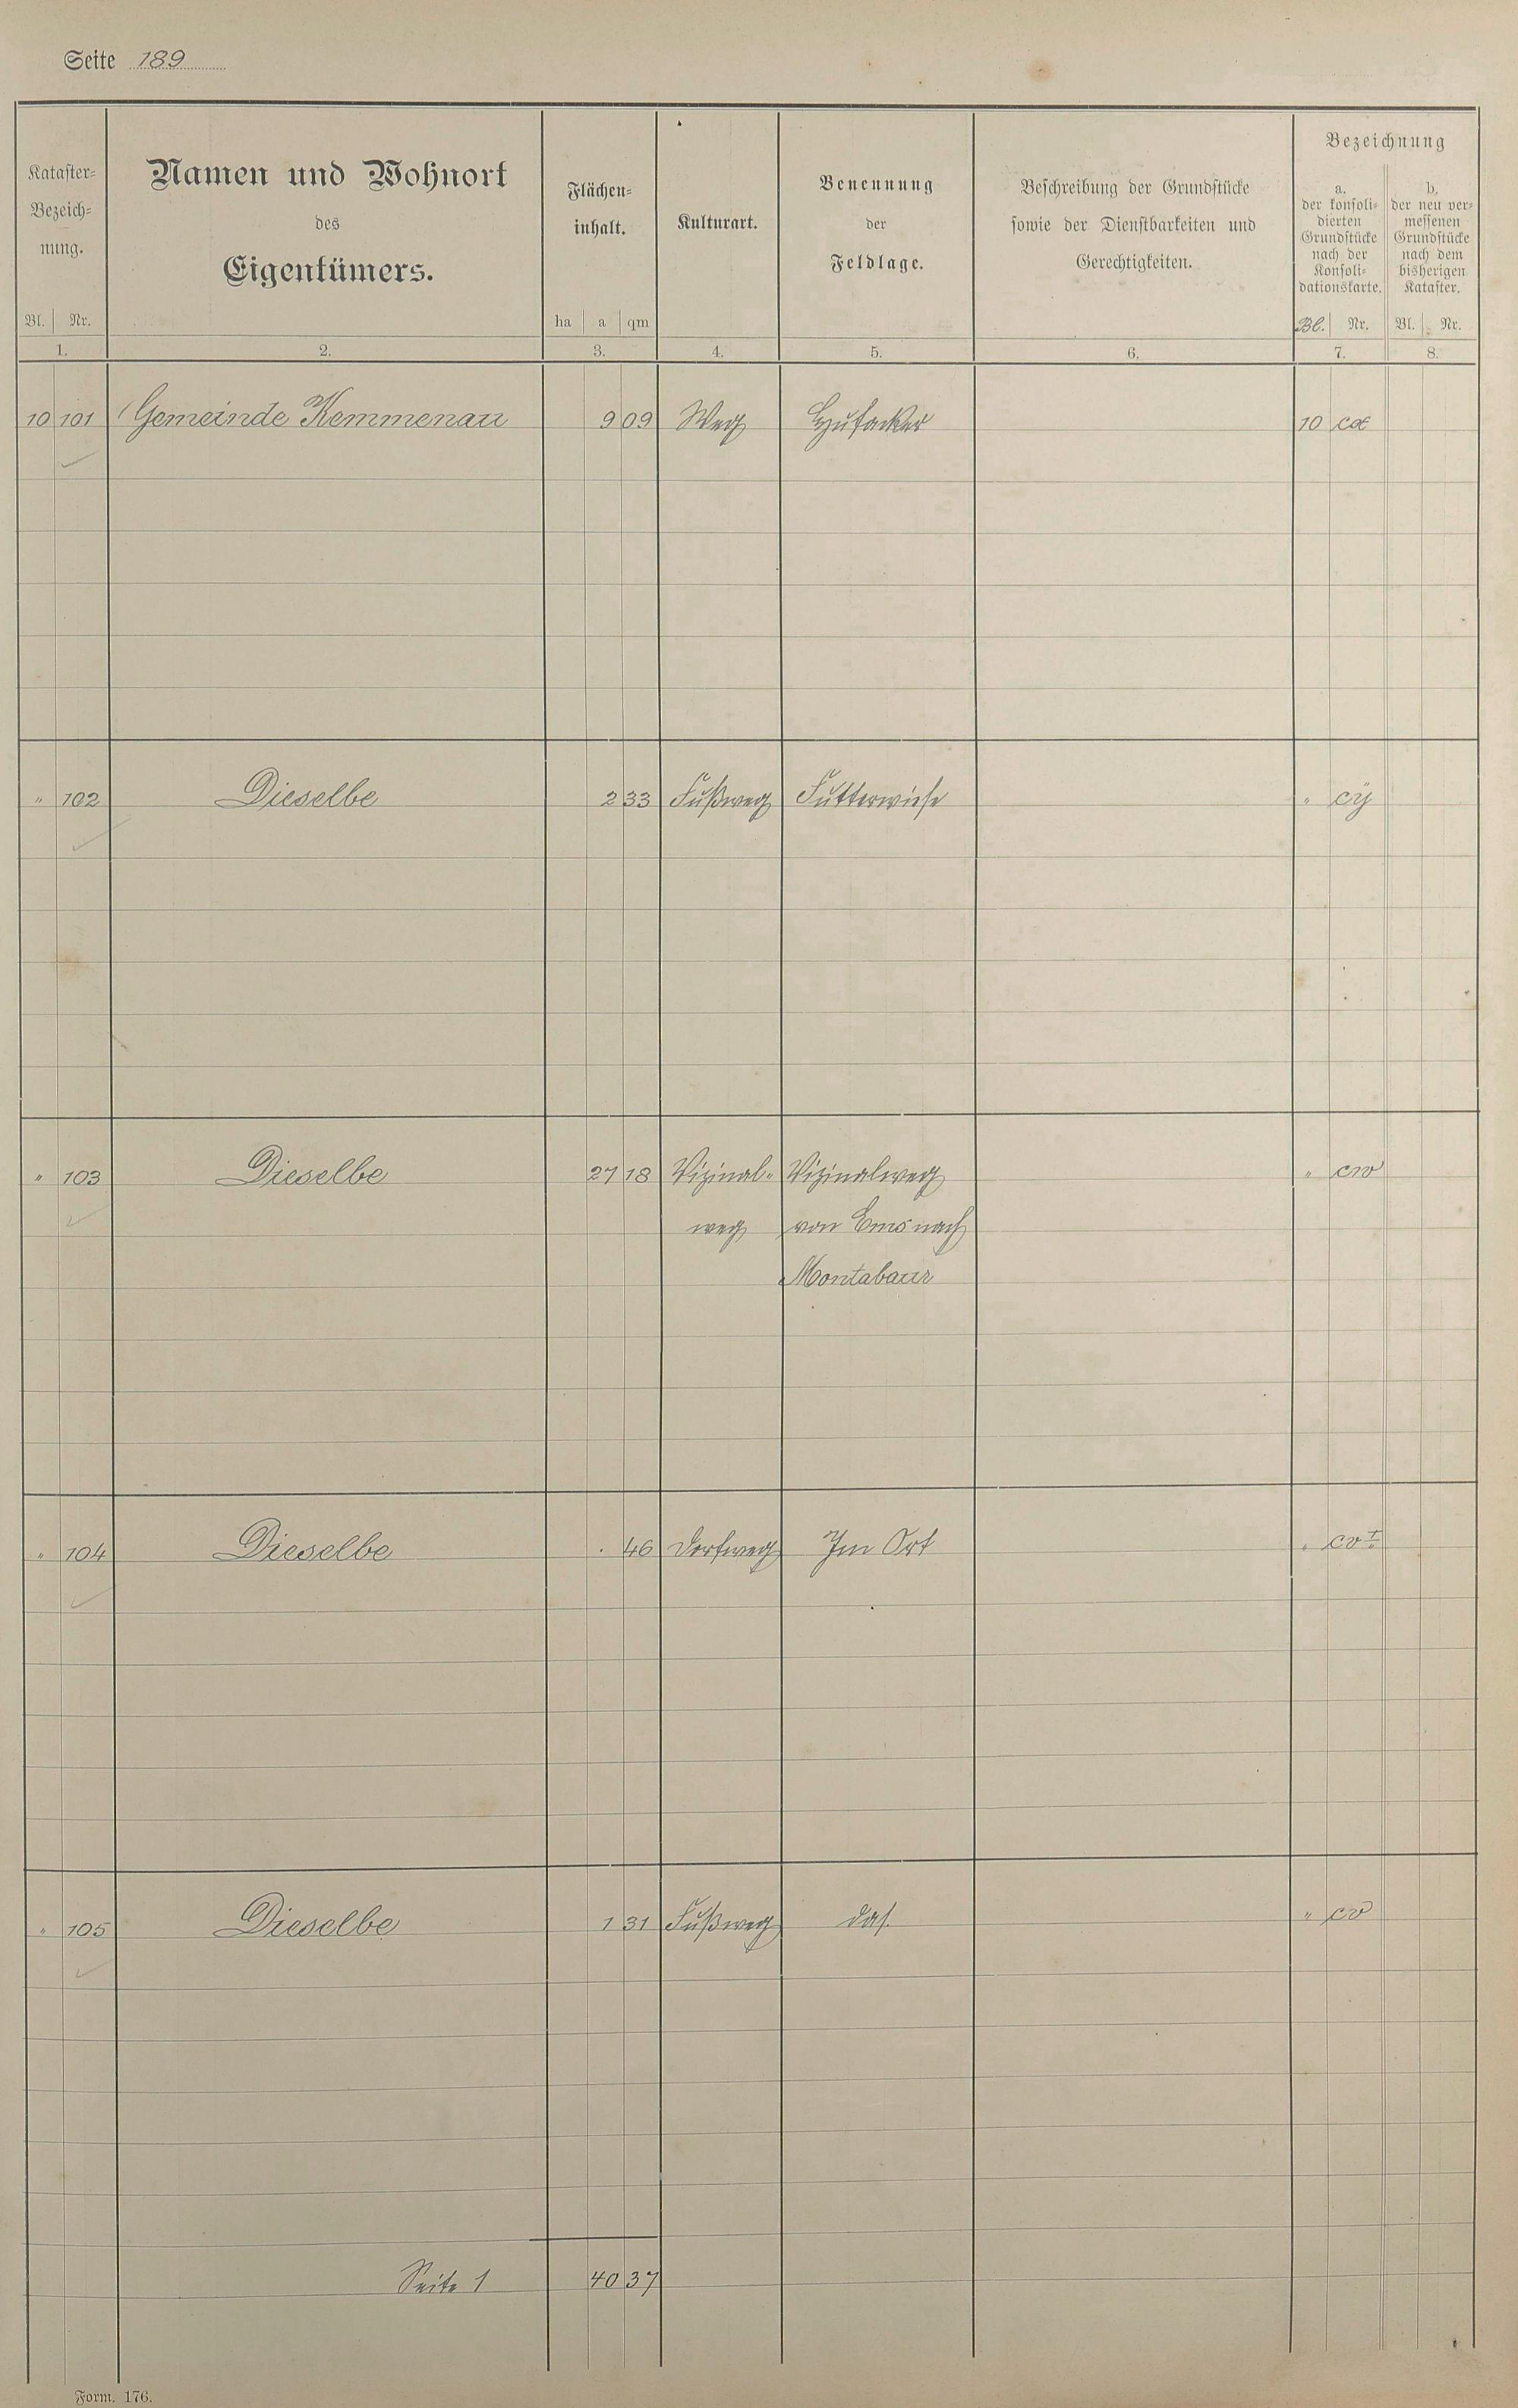 Seite 189
Kataster-
Bezeich-
nung.
Bl. Nr.
1.
Namen und Wohnort
des
Eigentümers.
2.
Flächen-
inhalt.
ha a qm
3.
Kulturart.
4.
Benennung
der
Feldlage.
5.
Beschreibung der Grundstücke
sowie der Dienstbarkeiten und
Gerechtigkeiten.
6.
Bezeichnung
a.
der konsoli-
dierten
Grundstücke
nach der
Konsoli-
dationskarte.
Bl. Nr.
7.
b.
der neu ver-
messenen
Grundstücke
nach dem
bisherigen
Kataster.
Bl. Nr.
8.
10 101 Gemeinde Kemmenau 9 09 Weg 10 cx
" 102 Dieselbe 2 33 Fußweg Futterwiese " cÿ
" 103 Dieselbe 27 18 Vizinal- Vizinalweg " cw
weg von Ems nach
Montabaur
" 104 Dieselbe . 46 Dorfweg Im Ort " cv I
" 105 Dieselbe 1 31 Fußweg das. " cv
Seite 1 40 37
Form. 176.